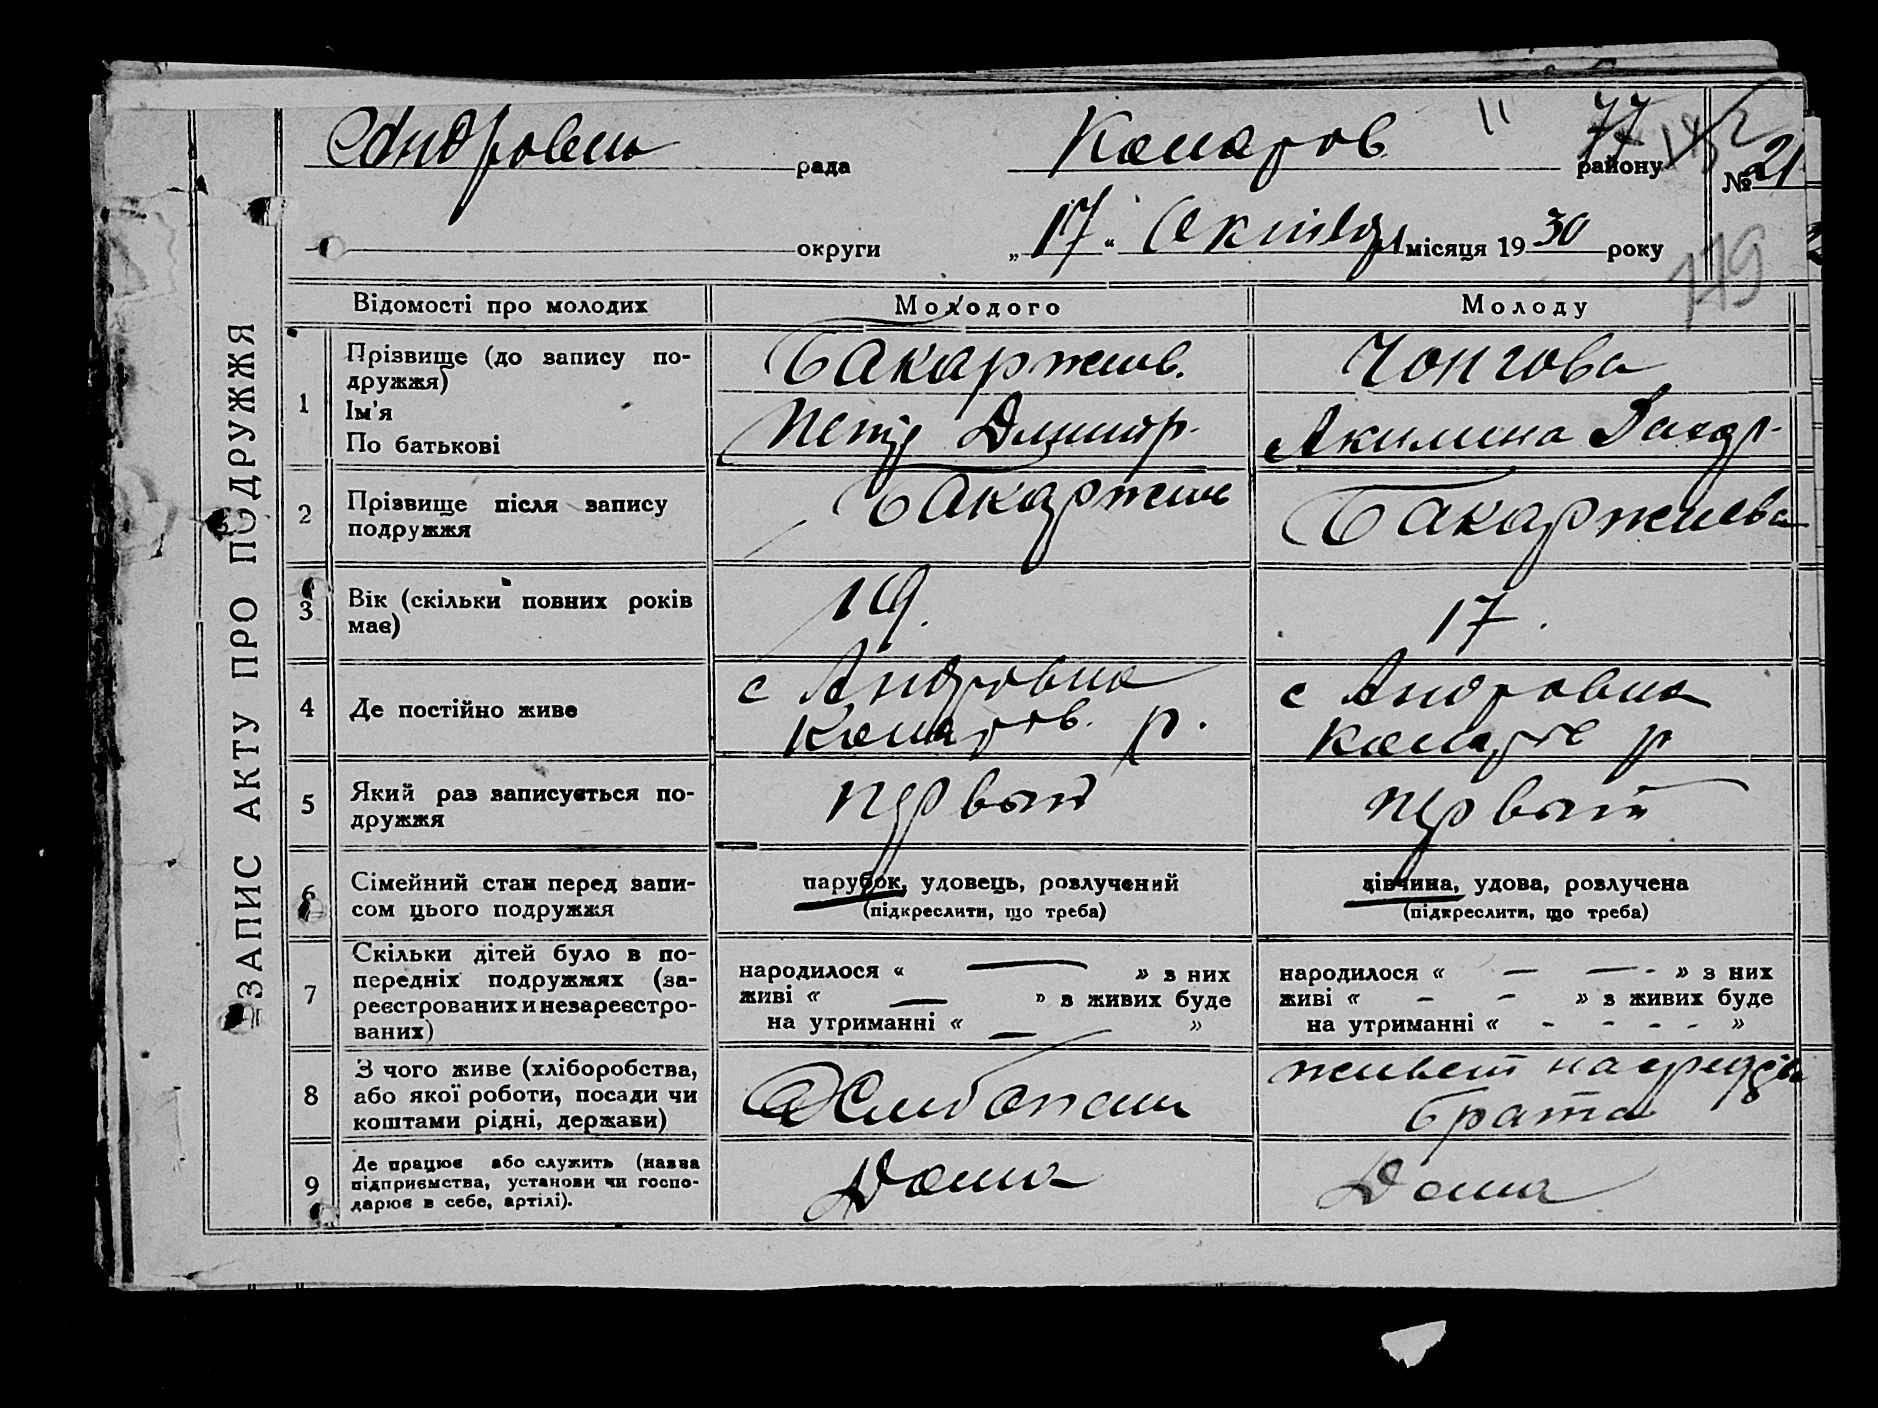 Андровск рада Комаров. району № 21
11 77
округи „17“ Октября місяця 1930 року
179
ЗАПИС АКТУ ПРО ПОДРУЖЖЯ
Відомості про молодих Молодого Молоду
1 Прізвище (до запису по- Бакаржиев. Чонгова
дружжя)
Ім'я Петр Дмитр. Акилина Захар.
По батькові
2 Прізвище після запису Бакаржиев Бакаржиева
подружжя
3 Вік (скільки повних років 19. 17.
має)
4 Де постійно живе с Андровка с Андровка
Комаров. р. Комаров р
5 Який раз записується по- первый первый
дружжя
6 Сімейний стан перед запи- парубок, удовець, розлучений дівчина, удова, розлучена
сом цього подружжя (підкреслити, що треба) (підкреслити, що треба)
7 Скільки дітей було в по- народилося « — » з них народилося « — — - » з них
передніх подружжях (за- живі « — » з живих буде живі « - - » з живих буде
реєстрованих и незареєстро- на утриманні « — » на утриманні « - - - - »
ваних)
8 З чого живе (хліборобства, Хлебопаш живет на средства
або якої роботи, посади чи брата
коштами рідні, держави)
9 Де працює або служить (назва Дома Дома
підприємства, установи чи госпо-
дарює в себе, артілі).